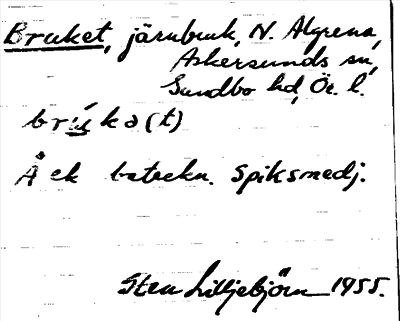 Bruket, järnbruk, N. Algrena,
Askersunds sn,
Sundbo hd, Ör. l.
brúka(t)
Å ek beteckn. Spiksmedj.
Sten Lilljebjörn 1955.